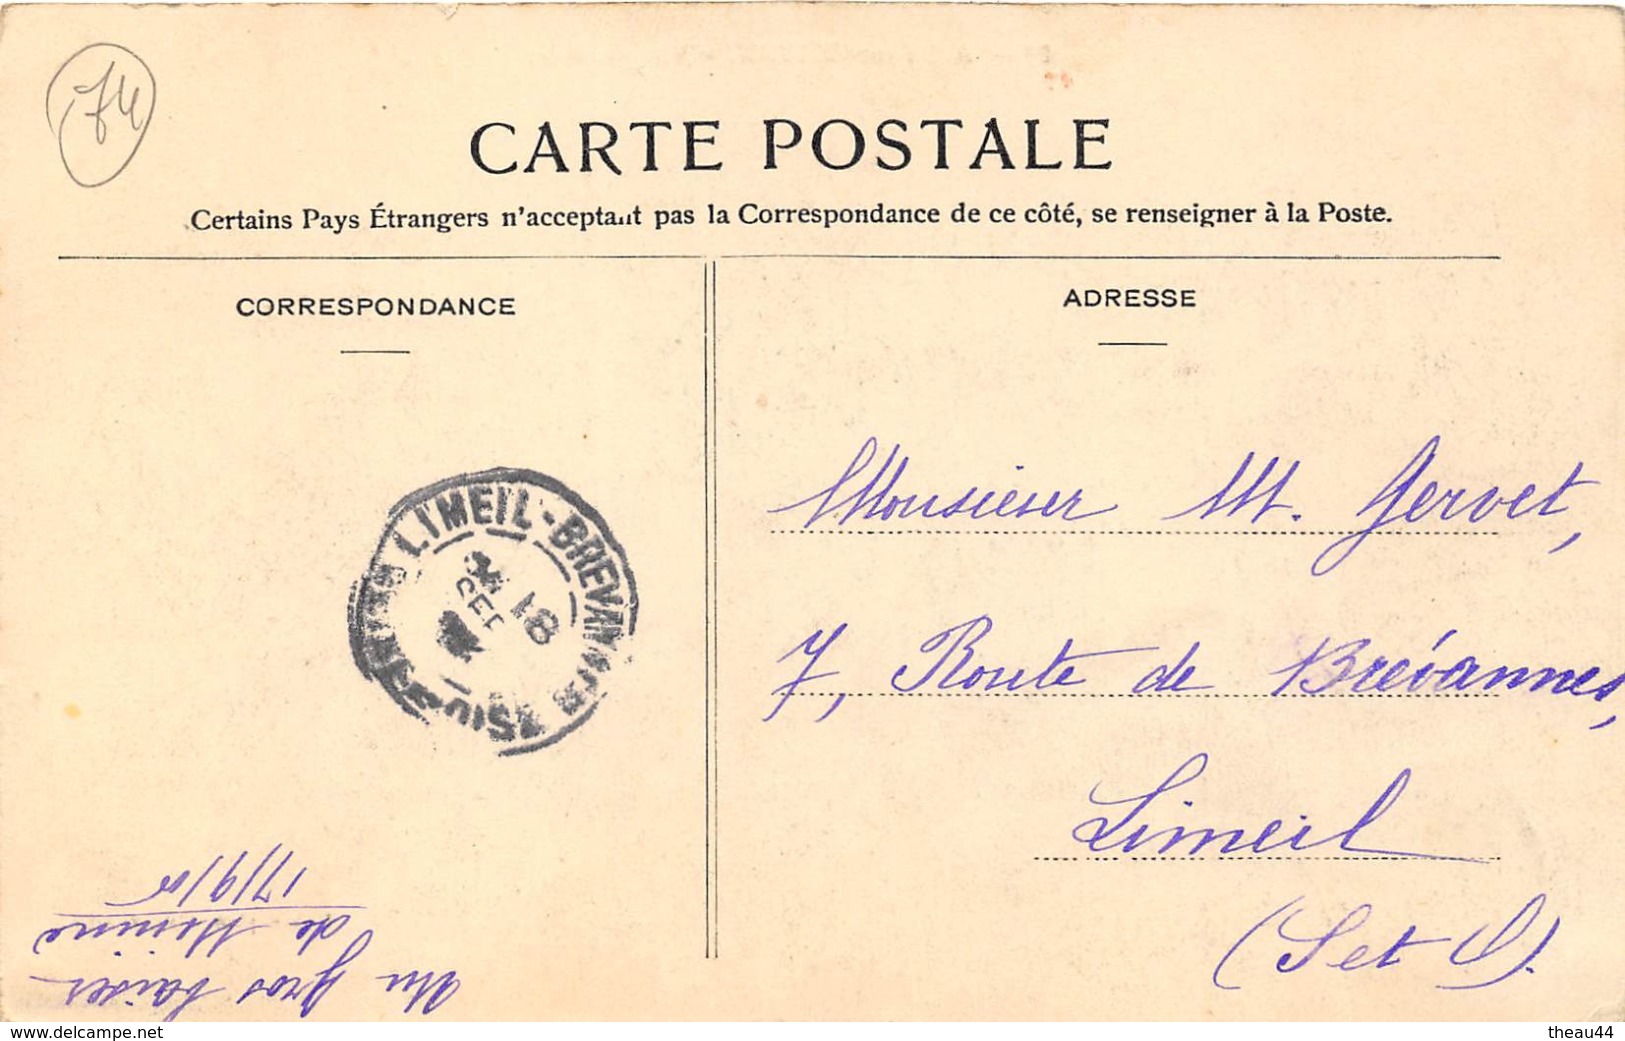 74
CARTE POSTALE
Certains Pays Étrangers n'acceptant pas la Correspondance de ce côté, se renseigner à la Poste.
CORRESPONDANCE
ADRESSE
Monsieur M. Gervet,
7, Route de Brévannes,
Limeil
(S et O).
LIMEIL-BREVANNES
18
SEPT
Un gros baiser
de Monine
17/9/
www.delcampe.net
theau44